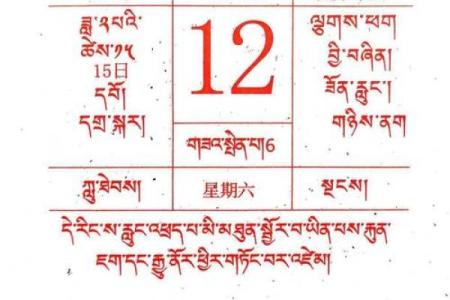 ཟླ་༢པའི་
ཚེས་༡༥
15日
དབོ།
དགྲ་སྐར།
12
གཟའ་སྤེན་པ།6
ལྕགས་ཕག
བྱི་བཞིན།
ཟོན་རླུང་།
གཉིས་ནག
ཀླུ་ཐེབས།
星期六
སྔངས།
དེ་རིང་ས་རླུང་འཕྲད་པ་མི་མཐུན་སྦྱོར་བ་ཡིན་པས་རྐུན་
ཇག་དང་རྒྱུ་ནོར་ཕྱིར་གཏོང་བར་འཛེམ།